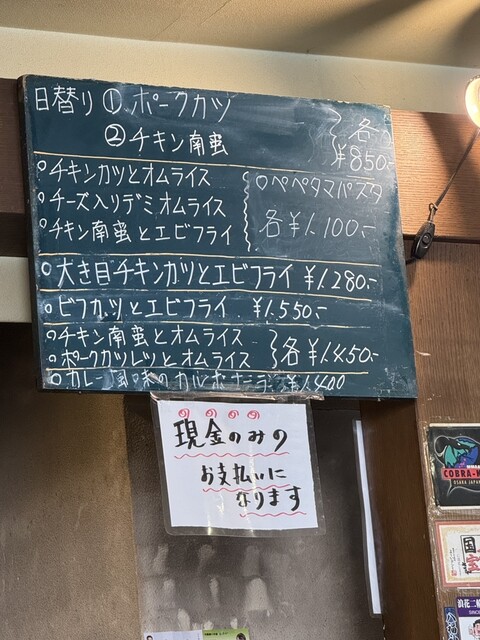 日替り ① ポークカツ
② チキン南蛮
各 ¥850-
○チキンカツとオムライス
○チーズ入りデミオムライス
○チキン南蛮とエビフライ
○ペペタマパスタ
各¥1.100-
○大き目チキンカツとエビフライ ¥1.280-
○ビフカツとエビフライ ¥1.550-
○チキン南蛮とオムライス
○ポークカツレツとオムライス
各¥1.450-
○カレー風味のカルボナーラ ¥1.400
現金のみの
お支払いに
なります
COBRA
OSAKA JAPAN
国
浪花二
SINCE